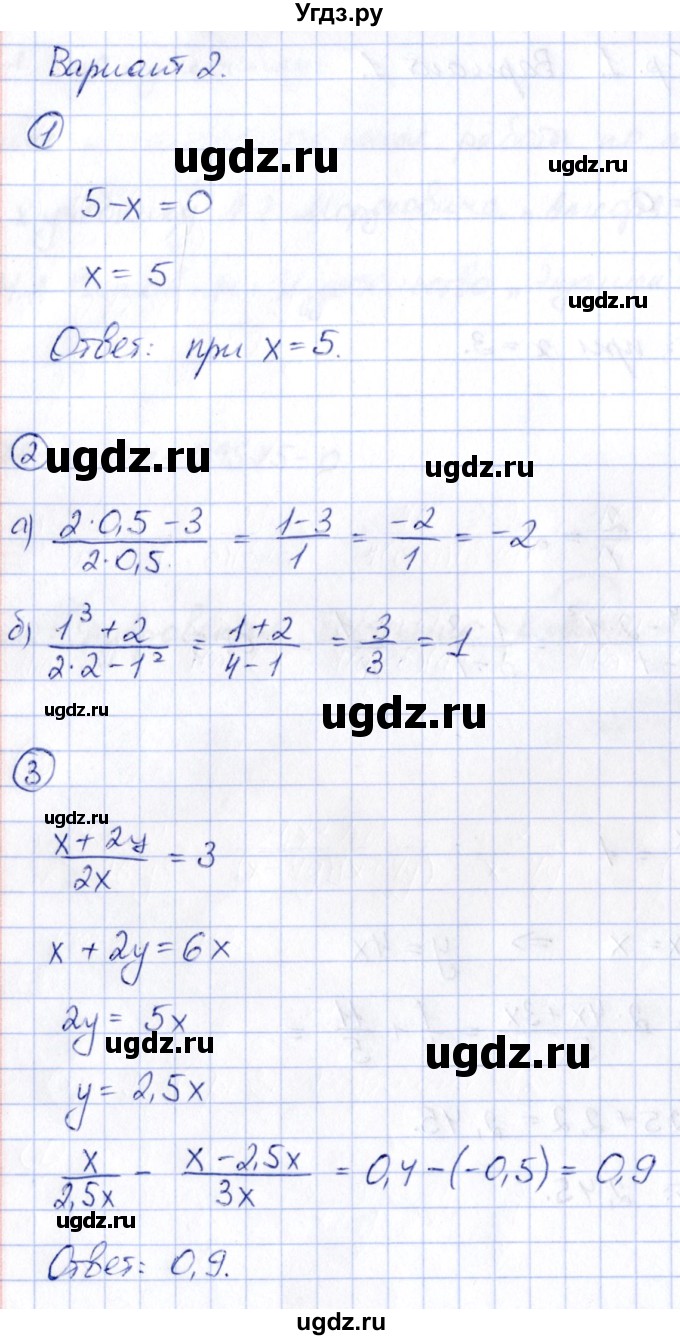 Угдз.ру
Вариант 2.
1
ugdz.ru
ugdz.ru
5-x = 0
x = 5
ugdz.ru
Ответ: при x = 5.
2
ugdz.ru
ugdz.ru
а) (2·0,5-3)/(2·0,5) = (1-3)/1 = -2/1 = -2
б) (1³+2)/(2·2-1²) = (1+2)/(4-1) = 3/3 = 1
ugdz.ru
ugdz.ru
3
ugdz.ru
(x+2y)/(2x) = 3
x + 2y = 6x
2y = 5x
ugdz.ru
ugdz.ru
y = 2,5x
x/(2,5x) - (x-2,5x)/(3x) = 0,4-(-0,5) = 0,9
ugdz.ru
Ответ: 0,9.
ugdz.ru